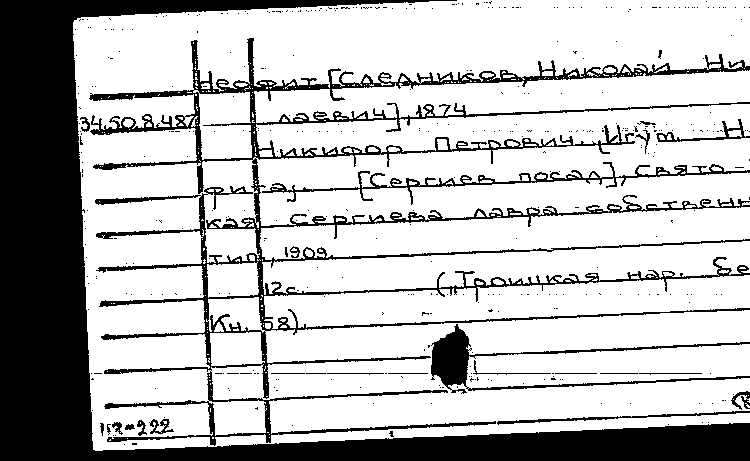 Неофит [Следников, Николай Ни
34.50.8.487 лаевич], 1874
Никифор Петрович. [Игум. Н
фита]. [Сергиев посад], Свято-
кая Сергиева лавра собственн
тип., 1909.
12с. („Троицкая нар. бе
Кн. 58).
-222